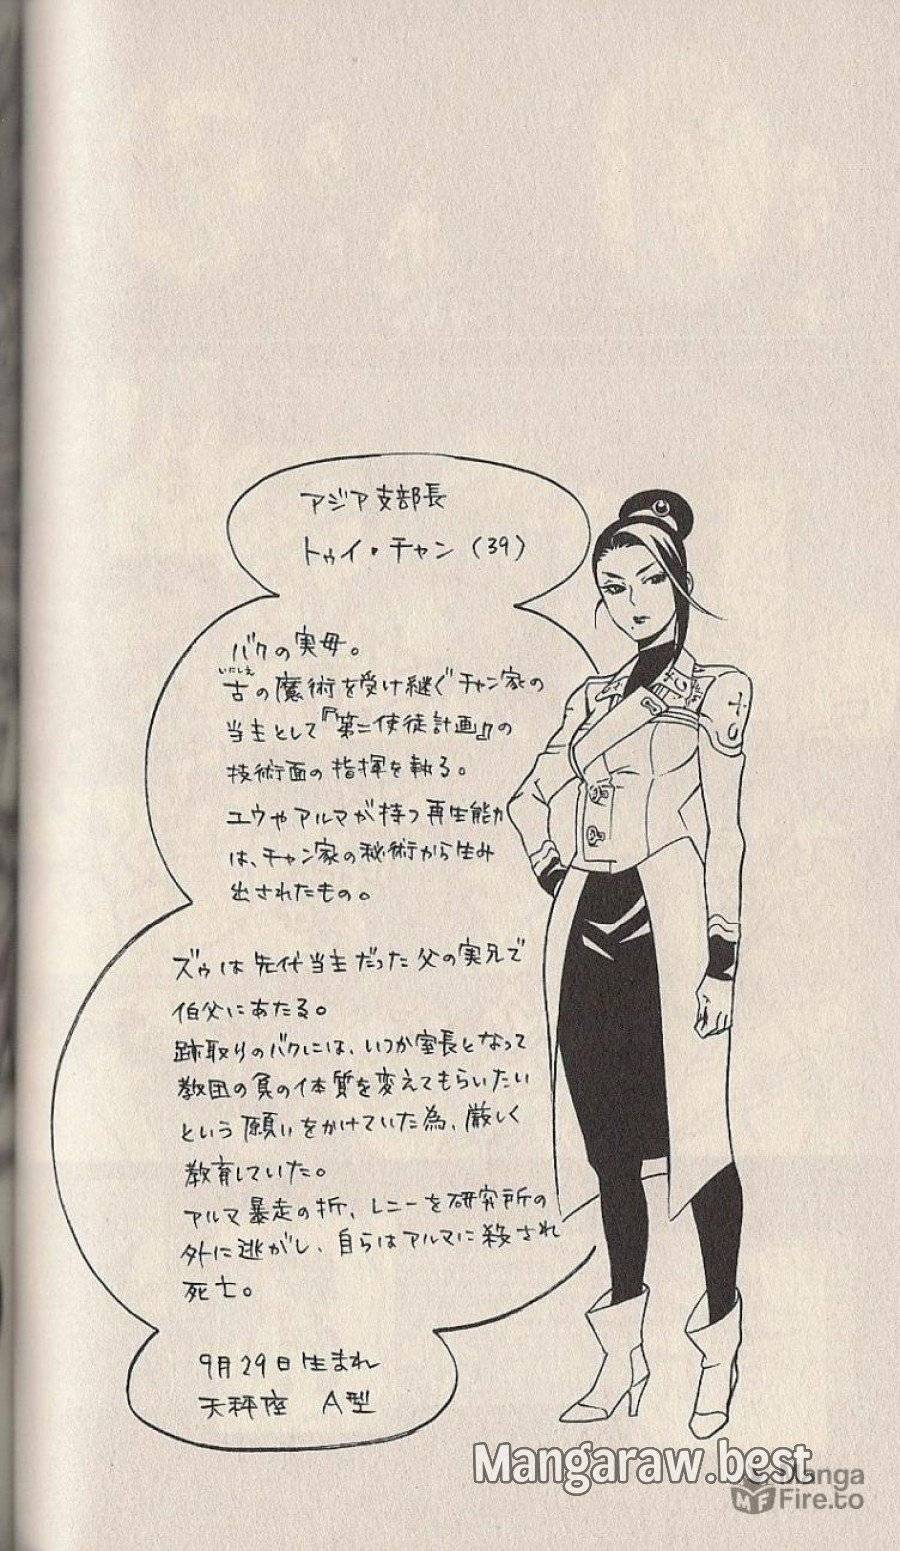 アジア支部長
トゥイ・チャン(39)
バクの実母。
いにしえ
古の魔術を受け継ぐチャン家の
当主として『第二使徒計画』の
技術面の指揮を執る。
ユウやアルマが持つ再生能力
は、チャン家の秘術から生み
出されたもの。
ズゥは先代当主だった父の実兄で
伯父にあたる。
跡取りのバクには、いつか室長となって
教団の負の体質を変えてもらいたい
という願いをかけていた為、厳しく
教育していた。
アルマ暴走の折、レニーを研究所の
外に逃がし、自らはアルマに殺され
死亡。
9月29日生まれ
天秤座 A型
Mangaraw.best
Manga
Fire.to
MF